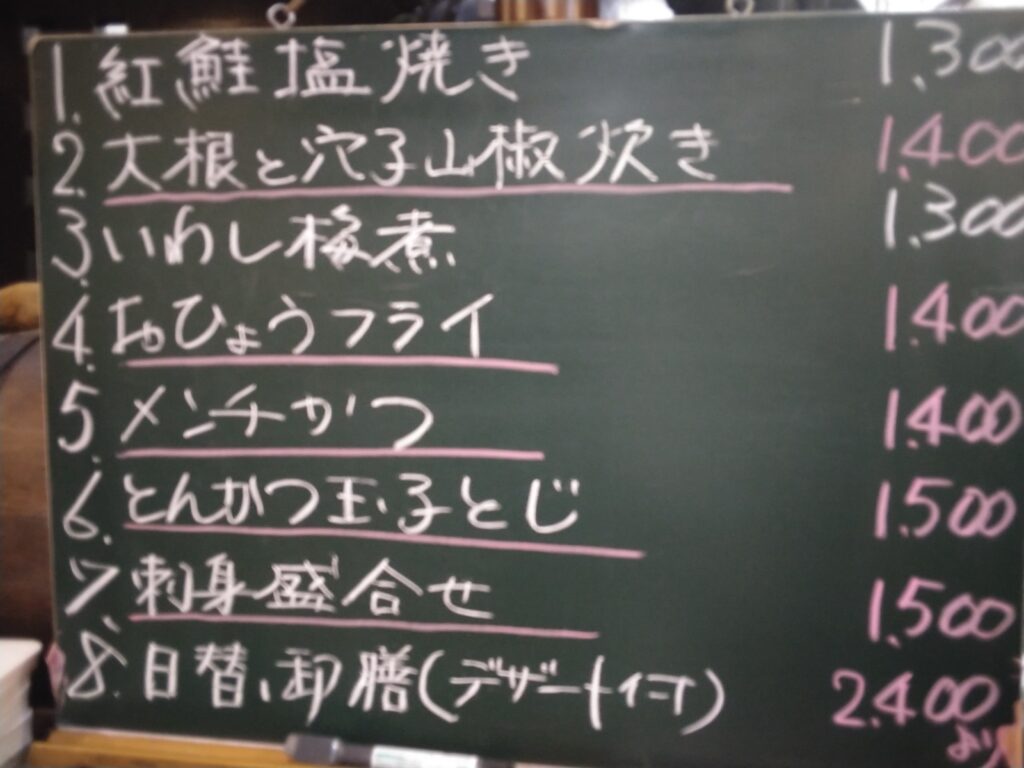 1. 紅鮭塩焼き 1.300
2. 大根と穴子山椒炊き 1.400
3. いわし梅煮 1.300
4. おひょうフライ 1.400
5. メンチかつ 1.400
6. とんかつ玉子とじ 1.500
7. 刺身盛合せ 1.500
8. 日替、御膳(デザート付) 2.400
より